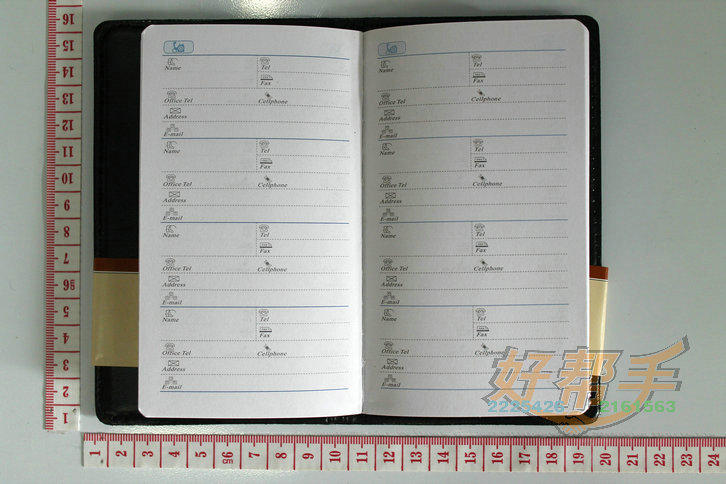 Name Tel
Fax
Office Tel Cellphone
Address
E-mail
Name Tel
Fax
Office Tel Cellphone
Address
E-mail
Name Tel
Fax
Office Tel Cellphone
Address
E-mail
Name Tel
Fax
Office Tel Cellphone
Address
E-mail
Name Tel
Fax
Office Tel Cellphone
Address
E-mail
Name Tel
Fax
Office Tel Cellphone
Address
E-mail
Name Tel
Fax
Office Tel Cellphone
Address
E-mail
Name Tel
Fax
Office Tel Cellphone
Address
E-mail
好帮手
2225426 2161563
16
15
14
13
12
11
10
9
8
7
96
5
4
3
2
1
1 2 3 4 5 96 7 8 9 10 11 12 13 14 15 16 17 18 19 20 21 22 23 24